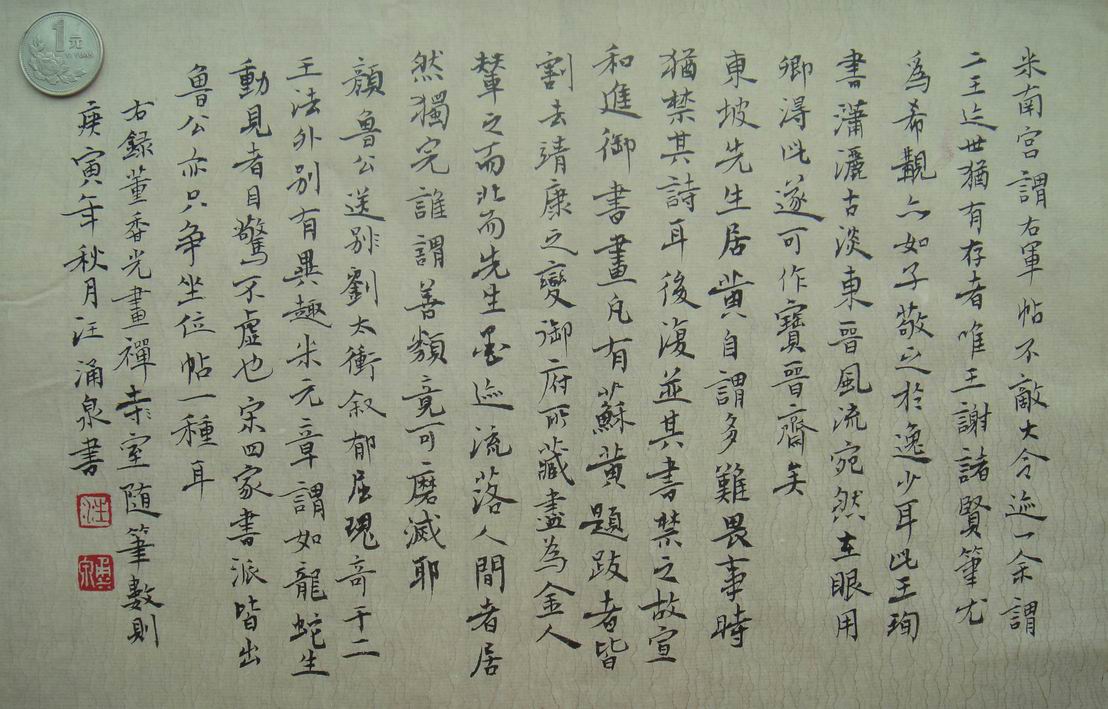 米南宮謂右軍帖不敵大令迹一余謂
二王迹世猶有存者唯王謝諸賢筆尤
為希覯亦如子敬之於逸少耳此王珣
書瀟灑古淡東晉風流宛然在眼用
卿得此遂可作寶晉齋矣
東坡先生居黄自謂多難畏事時
猶禁其詩耳後復並其書禁之故宣
和進御書畫凡有蘇黄題跋者皆
割去靖康之變御府所藏盡為金人
輦之而北而先生墨迹流落人間者居
然獨完誰謂善類竟可磨滅耶
顏魯公送別劉太衝叙郁屈瑰奇于二
王法外別有異趣米元章謂如龍蛇生
動見者目驚不虛也宋四家書派皆出
魯公亦只争坐位帖一種耳
右録董香光畫禪室随筆數則
庚寅年秋月汪涌泉書
汪
涌泉
1元
YI YUAN